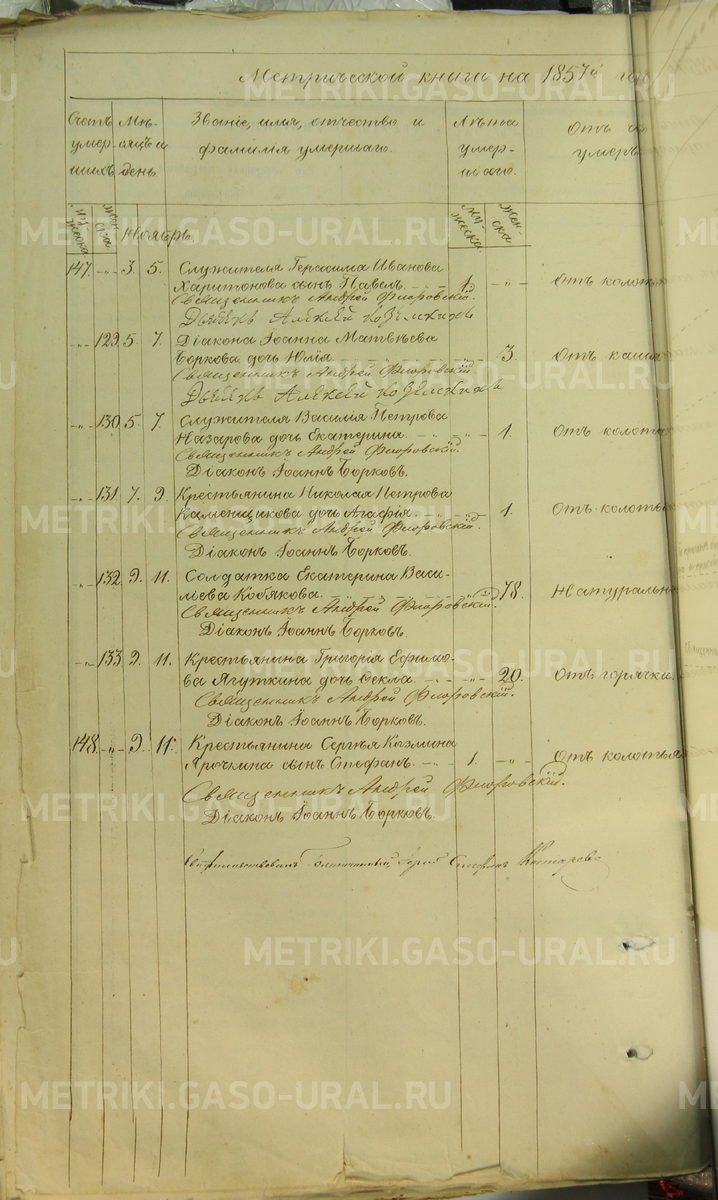 Метрической книги на 1857й год
Счетъ умер-шихъ
Мѣ-сяцъ и день
Званіе, имя, отчество и фамилія умершаго.
Лѣта умер-шаго.
Отъ чего умеръ
Мужеска
Женска
Ноябрь
Мужеска
Женска
147. -"- 3. 5. Служителя Герасима Иванова
Харитонова сынъ Павелъ. 1. -"- Отъ колотья
Священникъ Андрей Флоровскій.
Дьячекъ Алексей
-"- 129. 5. 7. Діакона Іоанна Матвѣева
Боркова дочь Юлія. 3. Отъ кашля
Священникъ Андрей Флоровскій
Дьячекъ Алексей
-"- 130. 5. 7. Служителя Василія Петрова
Назарова дочь Екатерина. -"- 1. Отъ колотья
Священникъ Андрей Флоровскій.
Діаконъ Іоаннъ Борковъ.
-"- 131. 7. 9. Крестьянина Николая Петрова
Каменщикова дочь Агафія. -"- 1. Отъ колотья
Священникъ Андрей Флоровскій.
Діаконъ Іоаннъ Борковъ.
-"- 132. 9. 11. Солдатка Екатерина Васи-
лѣева Кобякова. -"- 78. Натурально
Священникъ Андрей Флоровскій.
Діаконъ Іоаннъ Борковъ.
-"- 133. 9. 11. Крестьянина Григорія Ефимо-
ва Ягуткина дочь Ѳекла. -"- 20. Отъ горячки.
Священникъ Андрей Флоровскій.
Діаконъ Іоаннъ Борковъ.
148. -"- 9. 11. Крестьянина Сергѣя Козмина
Ярочкина сынъ Стефанъ. 1. -"- Отъ колотья
Священникъ Андрей Флоровскій.
Діаконъ Іоаннъ Борковъ.
Свидѣтельствовалъ Благочинный, Іерей
METRIKI.GASO-URAL.RU